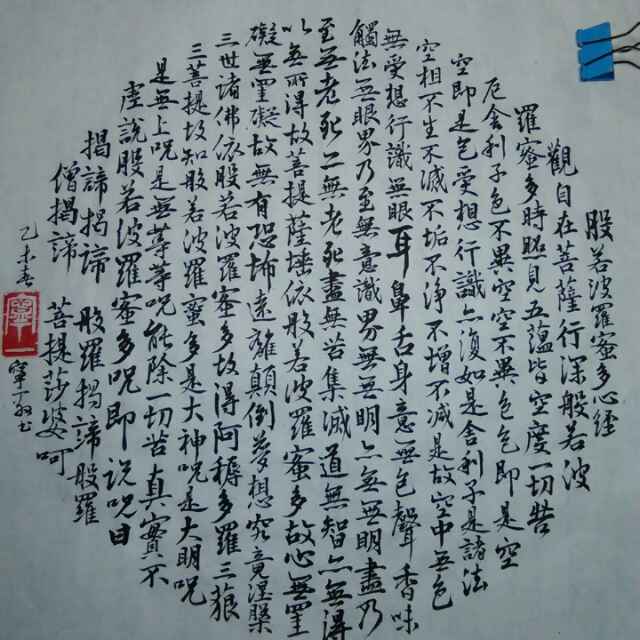 般若波羅蜜多心經
觀自在菩薩行深般若波
羅蜜多時照見五蘊皆空度一切苦
厄舍利子色不異空空不異色色即是空
空即是色受想行識亦復如是舍利子是諸法
空相不生不滅不垢不淨不增不減是故空中無色
無受想行識無眼耳鼻舌身意無色聲香味
觸法無眼界乃至無意識界無無明亦無無明盡乃
至無老死亦無老死盡無苦集滅道無智亦無得
以無所得故菩提薩埵依般若波羅蜜多故心無罣
礙無罣礙故無有恐怖遠離顛倒夢想究竟涅槃
三世諸佛依般若波羅蜜多故得阿耨多羅三藐
三菩提故知般若波羅蜜多是大神呪是大明呪
是無上呪是無等等呪能除一切苦真實不
虛說般若波羅蜜多呪即说呪曰
揭諦揭諦 般羅揭諦般羅
僧揭諦 菩提莎婆呵
乙未春